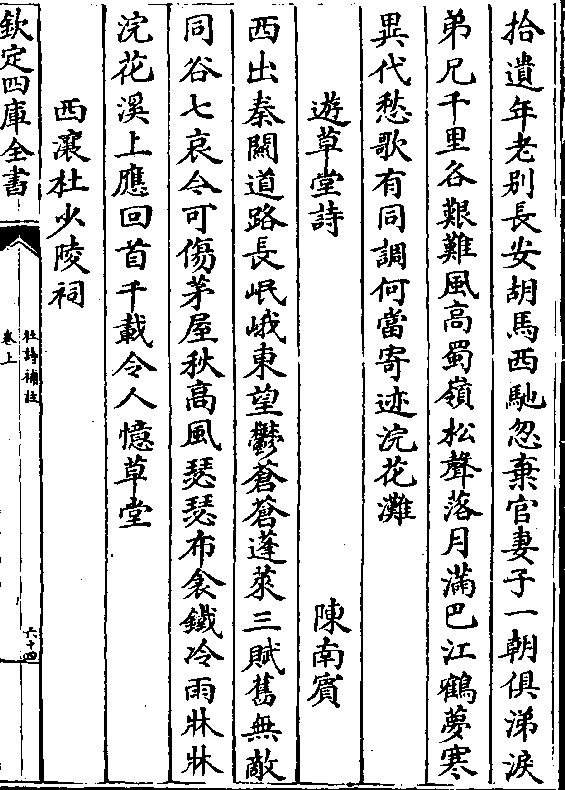 拾遺年老别長安胡馬西馳忽棄官妻子一朝俱涕淚
弟兄千里各艱難風高蜀嶺松聲落月滿巴江鶴夢寒
異代愁歌有同調何當寄迹浣花灘
遊草堂詩 陳南賓
西出秦關道路長岷峨東望鬱蒼蒼蓬萊三賦舊無敵
同谷七哀令可傷茅屋秋高風瑟瑟布衾鐵冷雨牀牀
浣花溪上應回首千載令人憶草堂
西瀼杜少陵祠
欽定四庫全書
杜詩補註
卷上
六十四